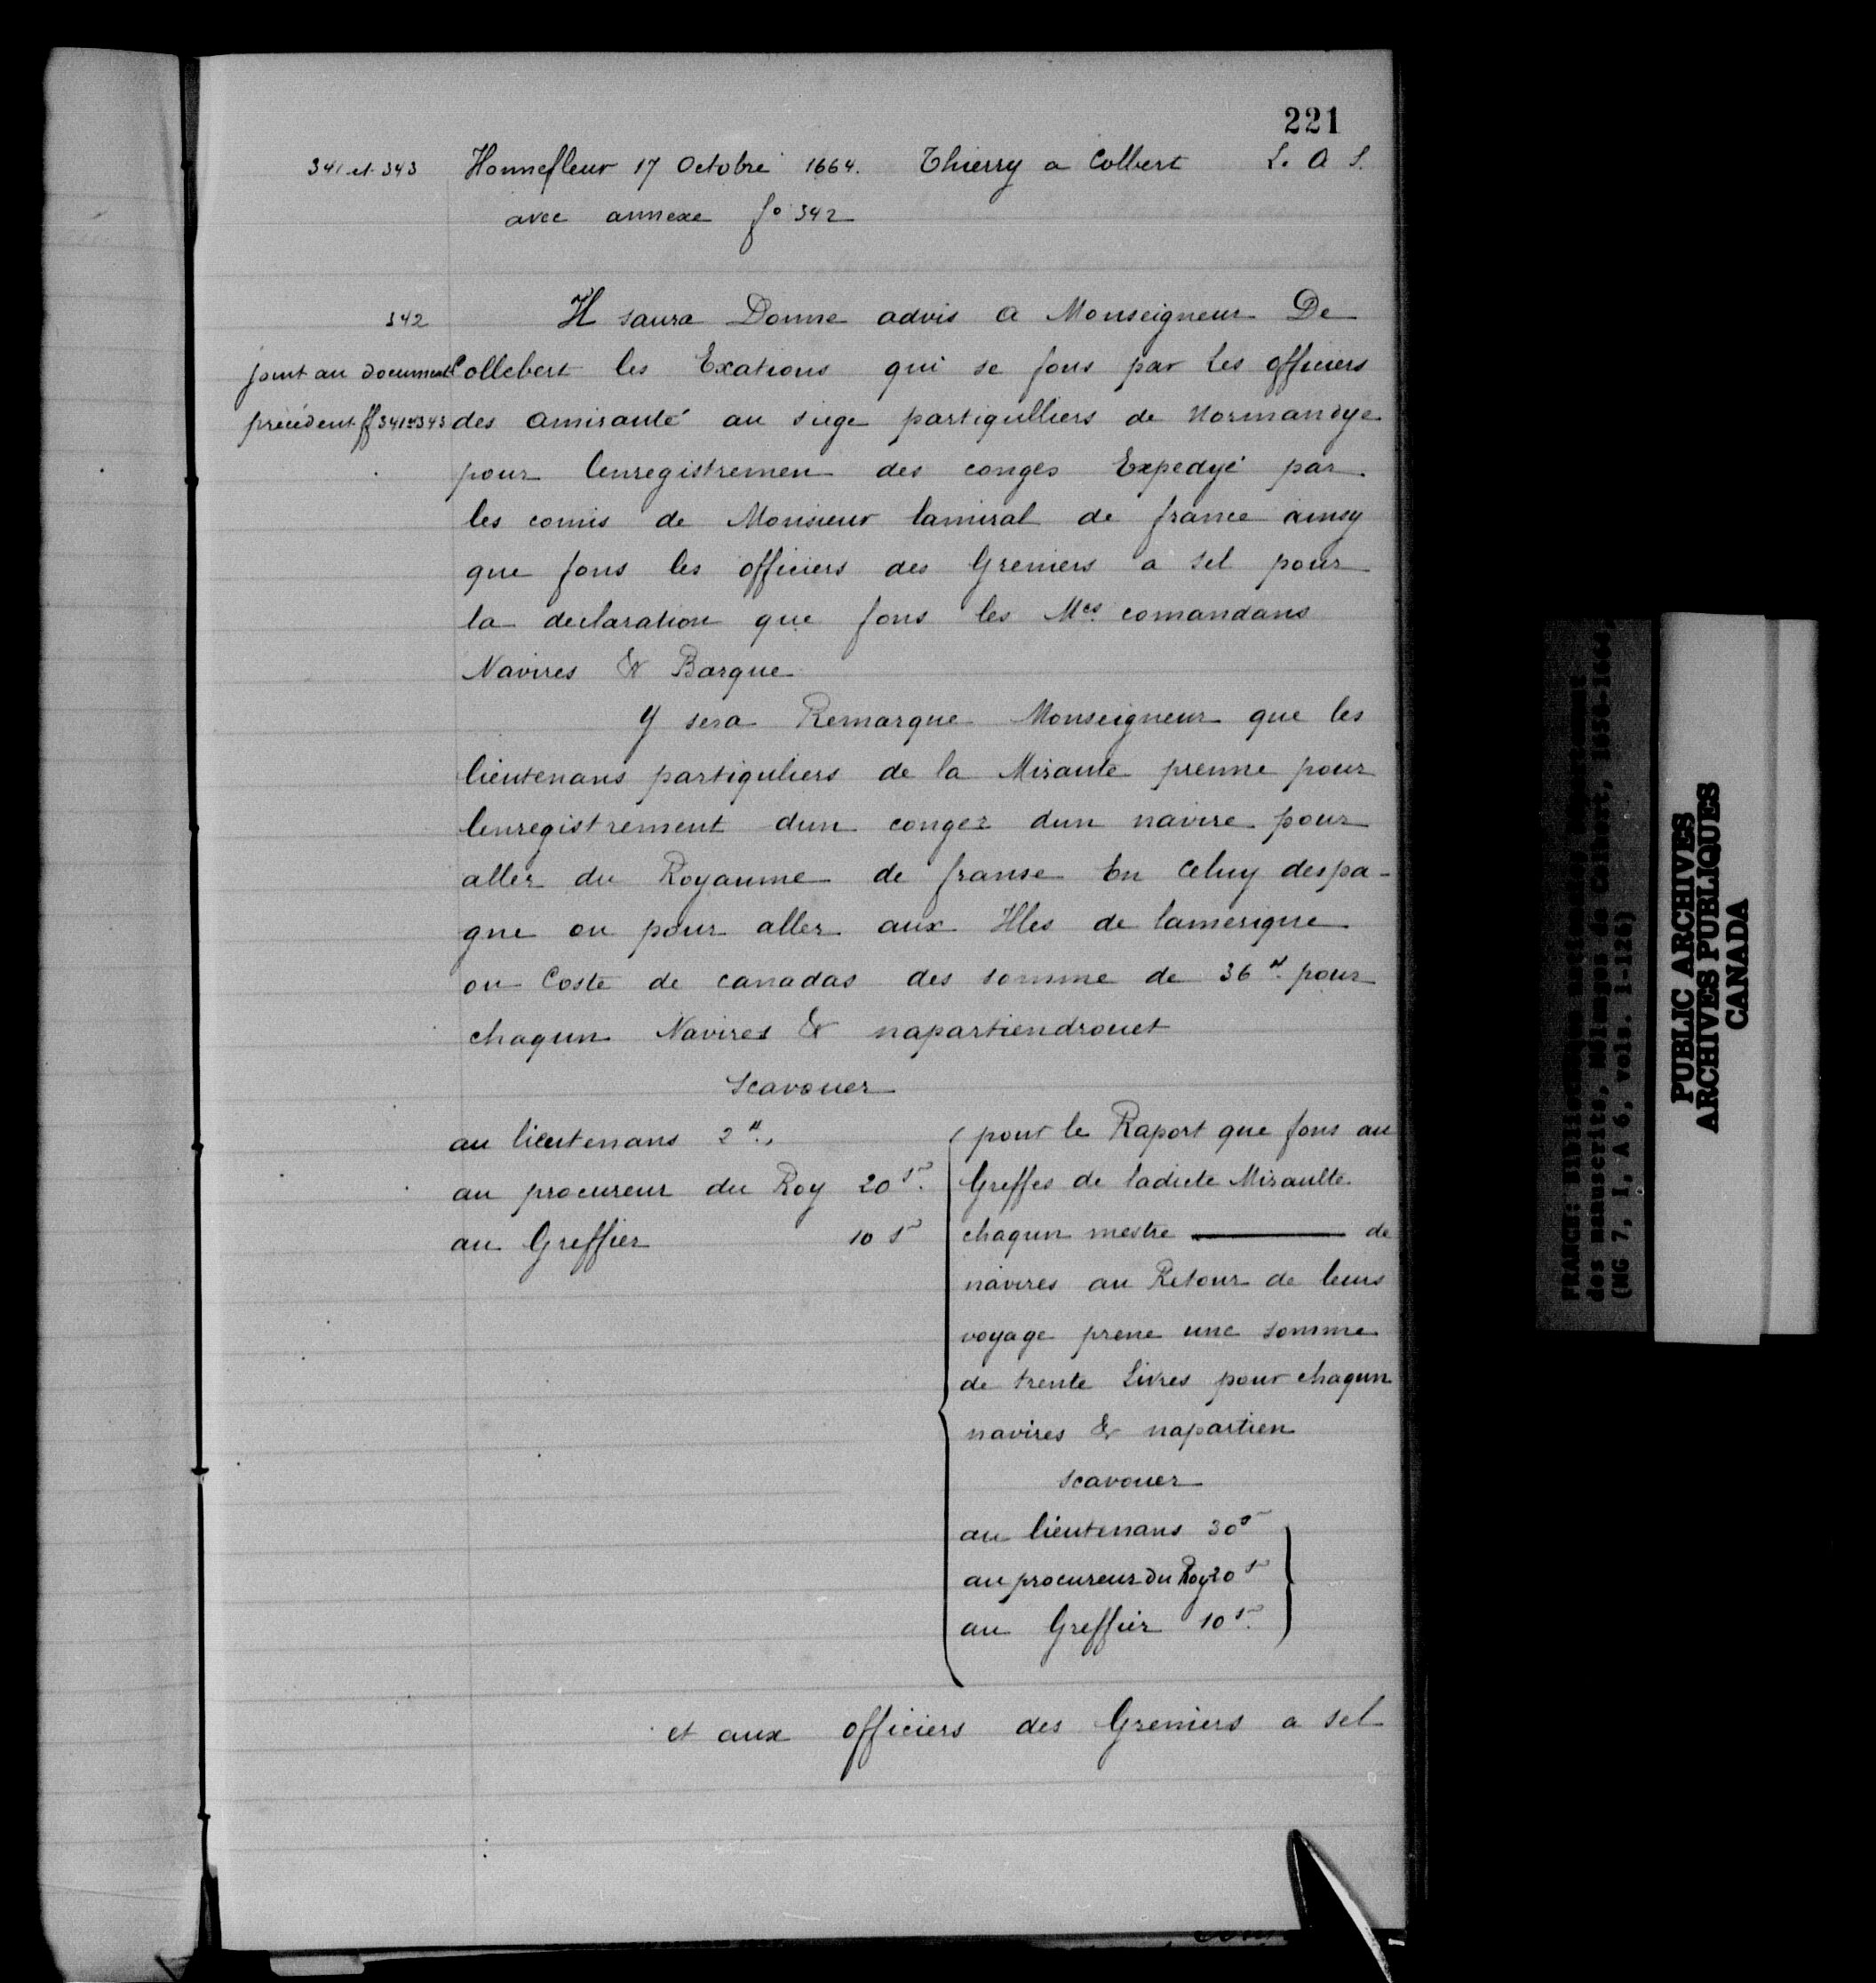 221
341 et 343 Honnefleur 17 Octobre 1664. Thierry a Colbert L. A S.
avec annexe fo 342
342 Il saura Donne advis a Monseigneur De
joint au document Collebert les Exations qui se fons par les officiers
précédent ff 341 et 343 des amirauté au siege partigulliers de Normandye
pour lenregistremen des conges Expedyé par
les comis de Monsieur lamiral de france ainsy
que fons les officiers des Greniers a sel pour
la declaration que fons les Mes comandans
Navires & Barque
Y sera Remarque Monseigneur que les
lieutenans partiguliers de la Miraute prenne pour
lenregistrement dun congez dun navire pour
aller du Royaume de franse En Celuy despa-
gne ou pour aller aux Illes de lamerique
ou Coste de canadas des somme de 36 ₶. pour
chaqun Navires & napartiendrouet
Scavouer
au lieutenans 2 ₶.
au procureur du Roy 20 s.
au Greffier 10 s
pour le Raport que fons au
Greffes de ladicte Miraulte
chaqun mestre de
navires au Retour de leurs
voyage prene une somme
de trente Livres pour chaqun
navires & napartien
scavouer
au lieutenans 30 s
au procureur du Roy 20 s
au Greffier 10 s.
et aux officiers des Greniers a sel
FRANCE: Bibliothèque nationale, Département
des manuscrits, Mélanges de Colbert, 1656-1664
(MG 7, I, A 6, vols. 1-126)
PUBLIC ARCHIVES
ARCHIVES PUBLIQUES
CANADA